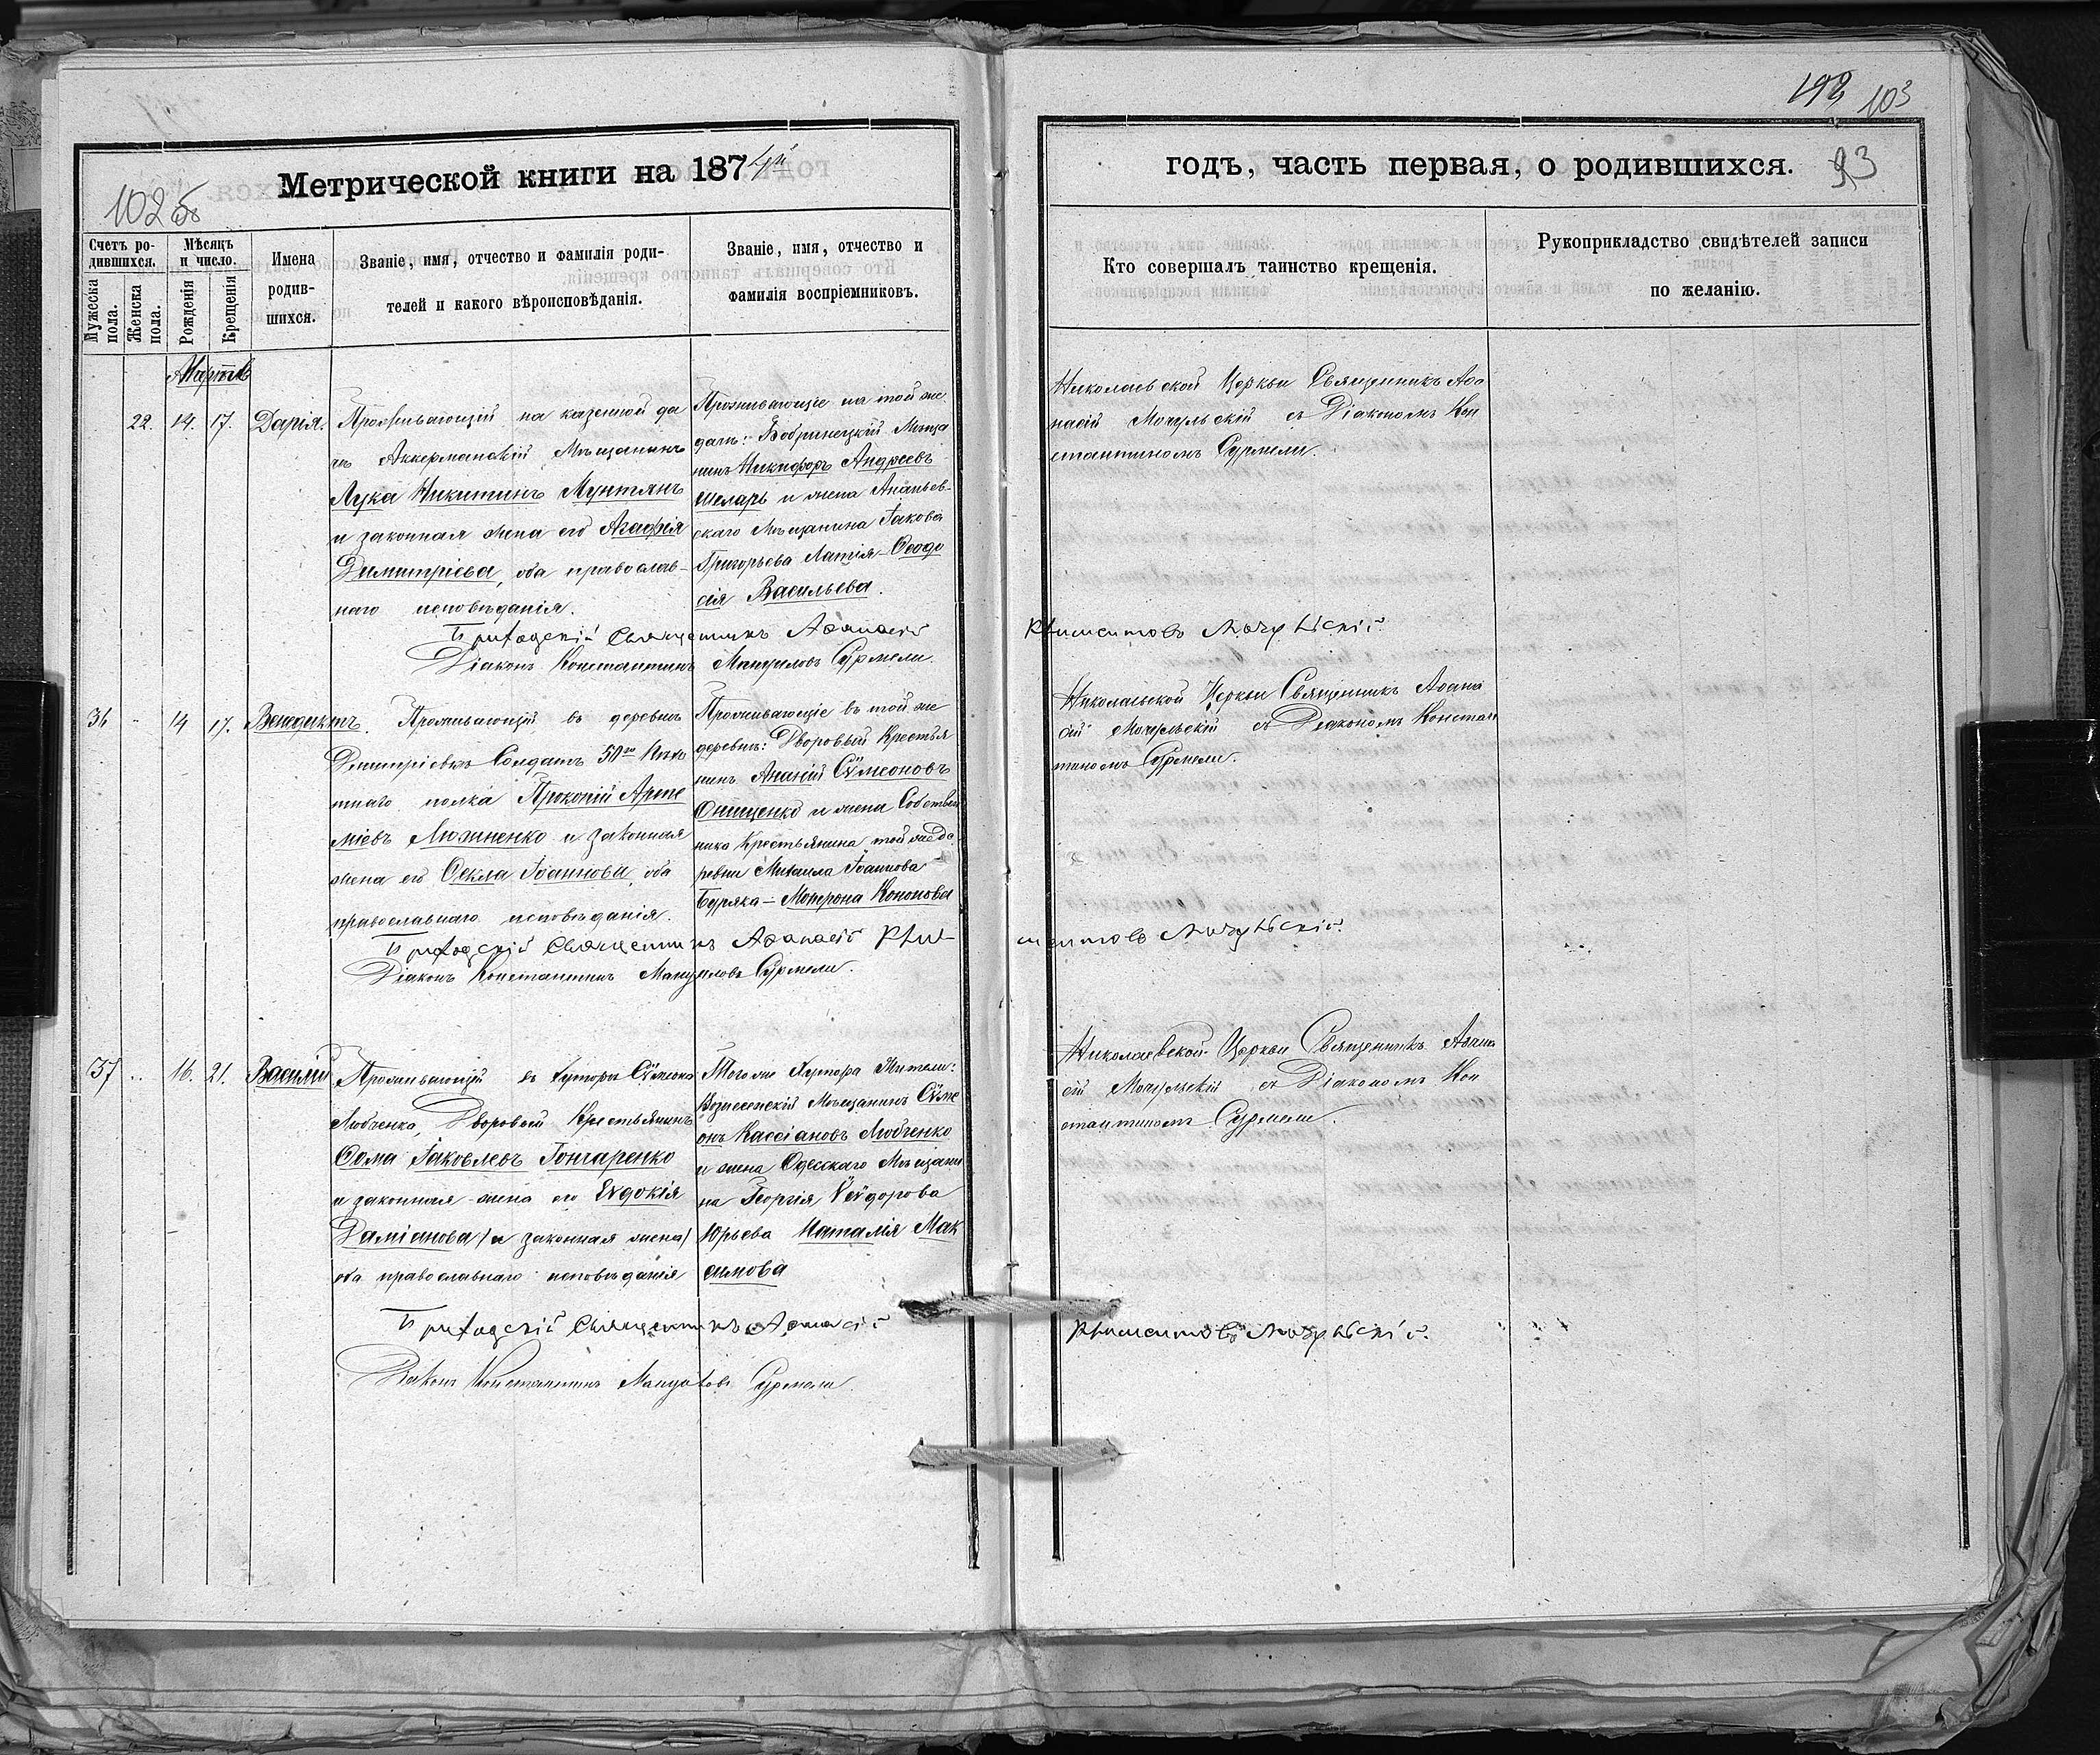 193 103
Метрической книги на 1874й
годъ, часть первая, о родившихся. 93
102 об
Счетъ родившихся.
Мужеска пола.
Женска пола.
Мѣсяцъ и число.
Рожденія
Крещенія
Имена родившихся.
Званіе, имя, отчество и фамилія роди-
телей и какого вѣроисповѣданія.
Званіе, имя, отчество и
фамилія воспріемниковъ.
Кто совершалъ таинство крещенія.
Рукоприкладство свидѣтелей записи
по желанію.
Мартъ
22. 14. 17. Дарія.
Проживающій на казенной да
чѣ Аккерманскій Мѣщанинъ
Лука Никитинъ Мунтянъ
и законная жена его Агафія
Димитріева, оба православ-
наго исповѣданія.
Проживающіе на той же
дачѣ: Бобринецкій Мѣща
нинъ Никифоръ Андреевъ
Шкларь и жена Ананьев-
скаго Мѣщанина Іакова
Григорьева Латія - Ѳеодо
сія Васильева.
Николаевской Церкви Священникъ Аѳа
насій Мочульскій съ Діакономъ Кон
стантиномъ Сурмели.
Приходскій Священникъ Аѳанасій Климентовъ Мочульскій.
Діаконъ Константинъ Мануиловъ Сурмели.
36 - 14 17. Венедиктъ.
Проживающій въ деревнѣ
Дмитріевкѣ Солдатъ 50го Пѣхо
тнаго полка Прокопій Арте
міевъ Логиненко и законная
жена его Ѳекла Іоаннова, оба
православнаго исповѣданія.
Проживающіе въ той же
деревнѣ: Дворовый Крестья
нинъ Ананій Сѵмеоновъ
Онищенко и жена Собствен
ника Крестьянина той же де
ревни Михаила Іоаннова
Буряка - Мотрона Кононова
Николаевской Церкви Священникъ Аѳана
сій Мочульскій съ Діакономъ Констан
тиномъ Сурмели.
Приходскій Священникъ Аѳанасій Климентовъ Мочульскій.
Діаконъ Константинъ Мануиловъ Сурмели.
37 .. 16. 21. Василій
Проживающій въ хуторѣ Сѵмеона
Любченка, Дворовый Крестьянинъ
Ѳома Іаковлевъ Гончаренко
и законная жена его Евдокія
Даміанова /и законная жена/
оба православнаго исповѣданія
Того же Хутора Жители:
Вознесенскій Мѣщанинъ Сѵме
онъ Кассіановъ Любченко
и жена Одесскаго Мѣщани
на Георгія
Юрьева Наталія Мак
симова
Николаевской Церкви Священникъ Аѳана
сій Мочульскій съ Діакономъ Кон
стантиномъ Сурмели.
Приходскій Священникъ Аѳанасій Климентовъ Мочульскій.
Діаконъ Константинъ Мануиловъ Сурмели.